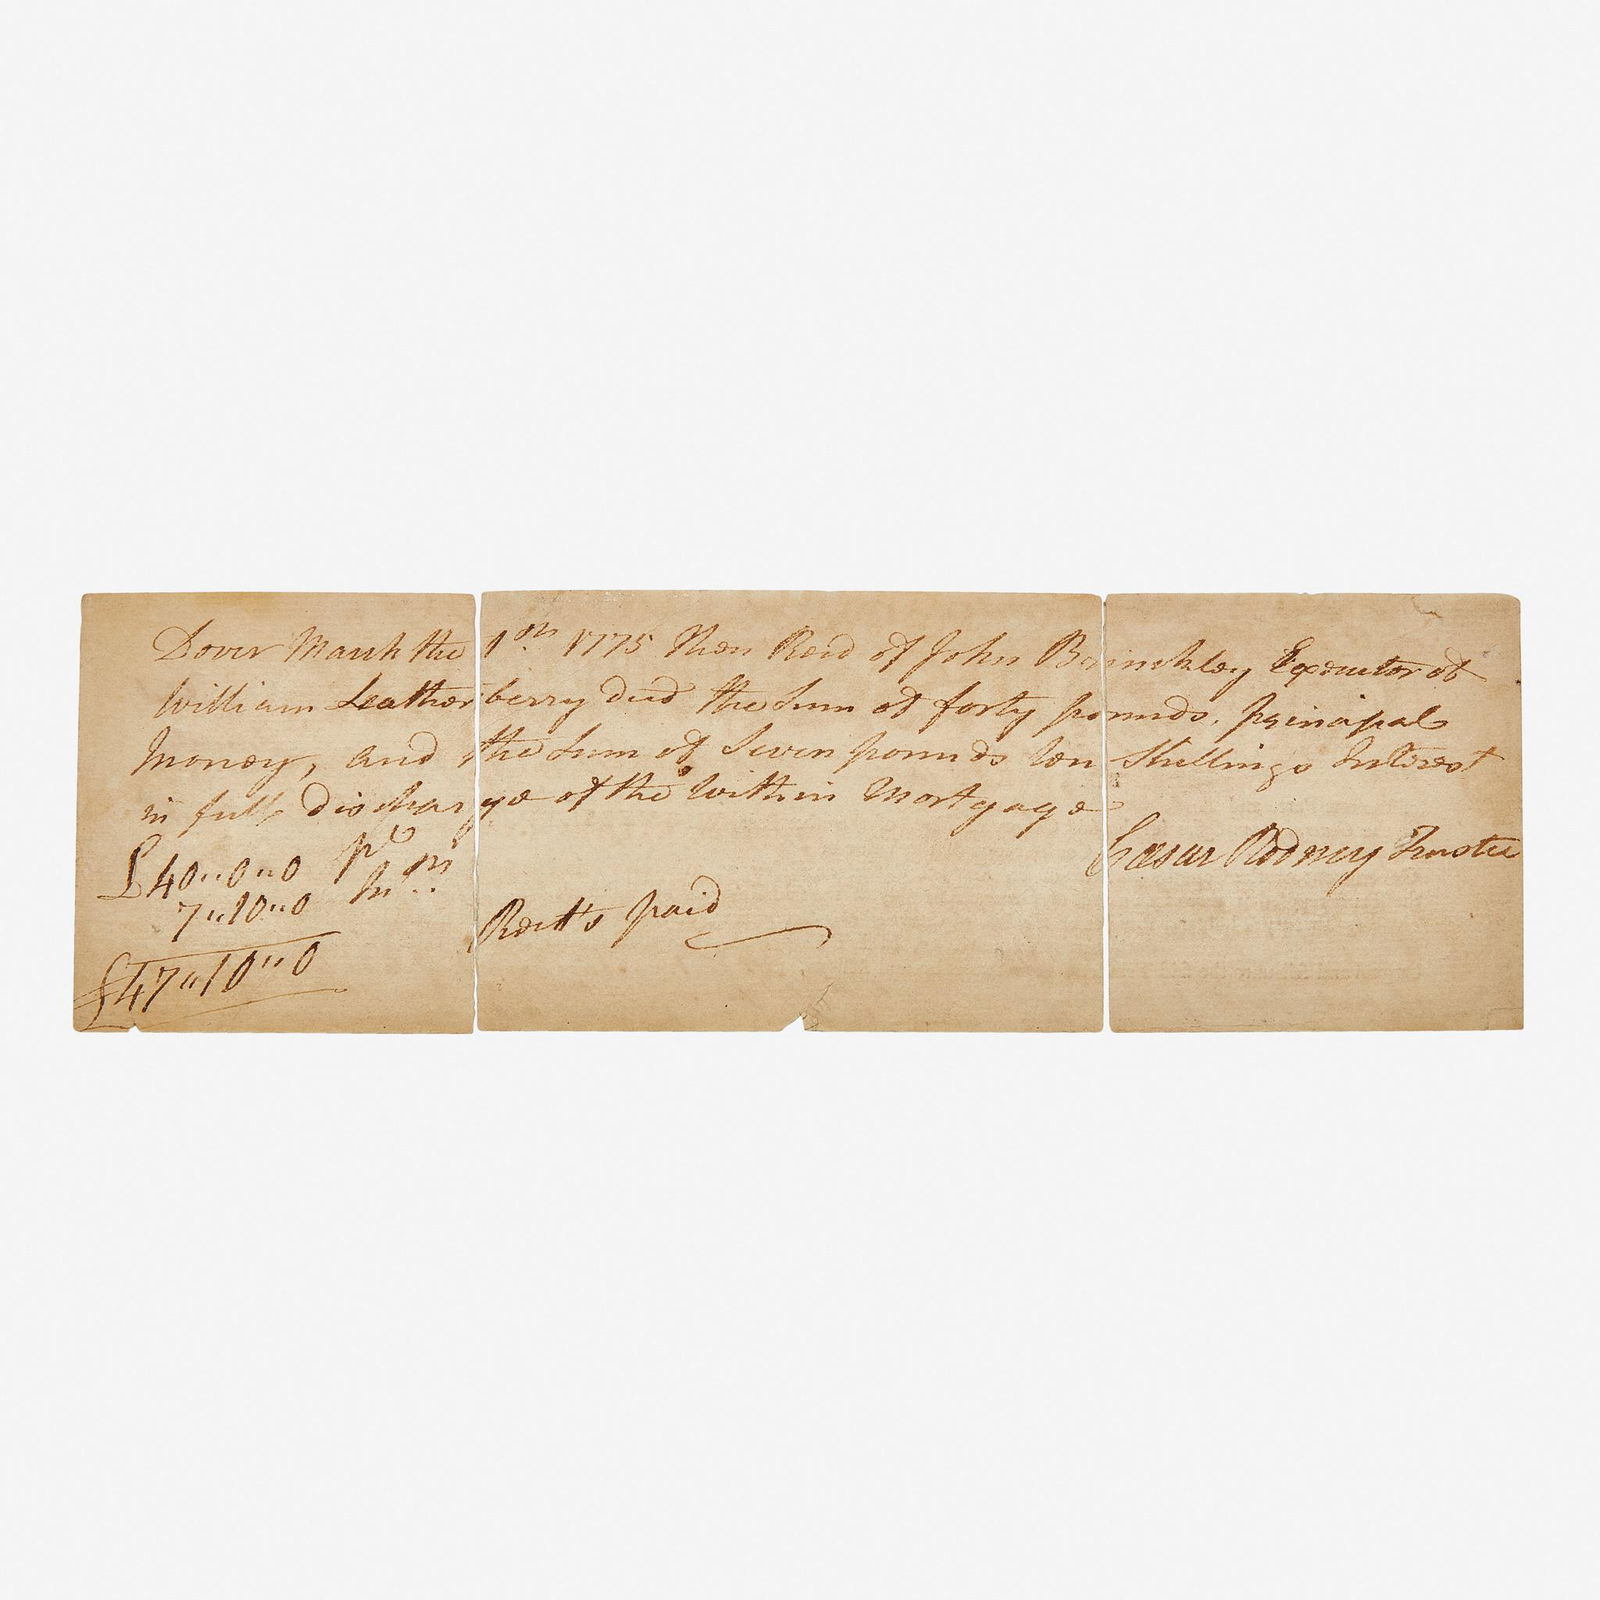 Dover March the 1st 1775 then Recd of John Brinckley Executor of
William Leatherberry decd the Sum of forty pounds, principal
Money, and the Sum of Seven pounds ten Shillings Interest
in full discharge of the within Mortgage
Cæsar Rodney Trustee
£40"0"0 pl
7"10"0 In
£47"10"0
Rect's paid